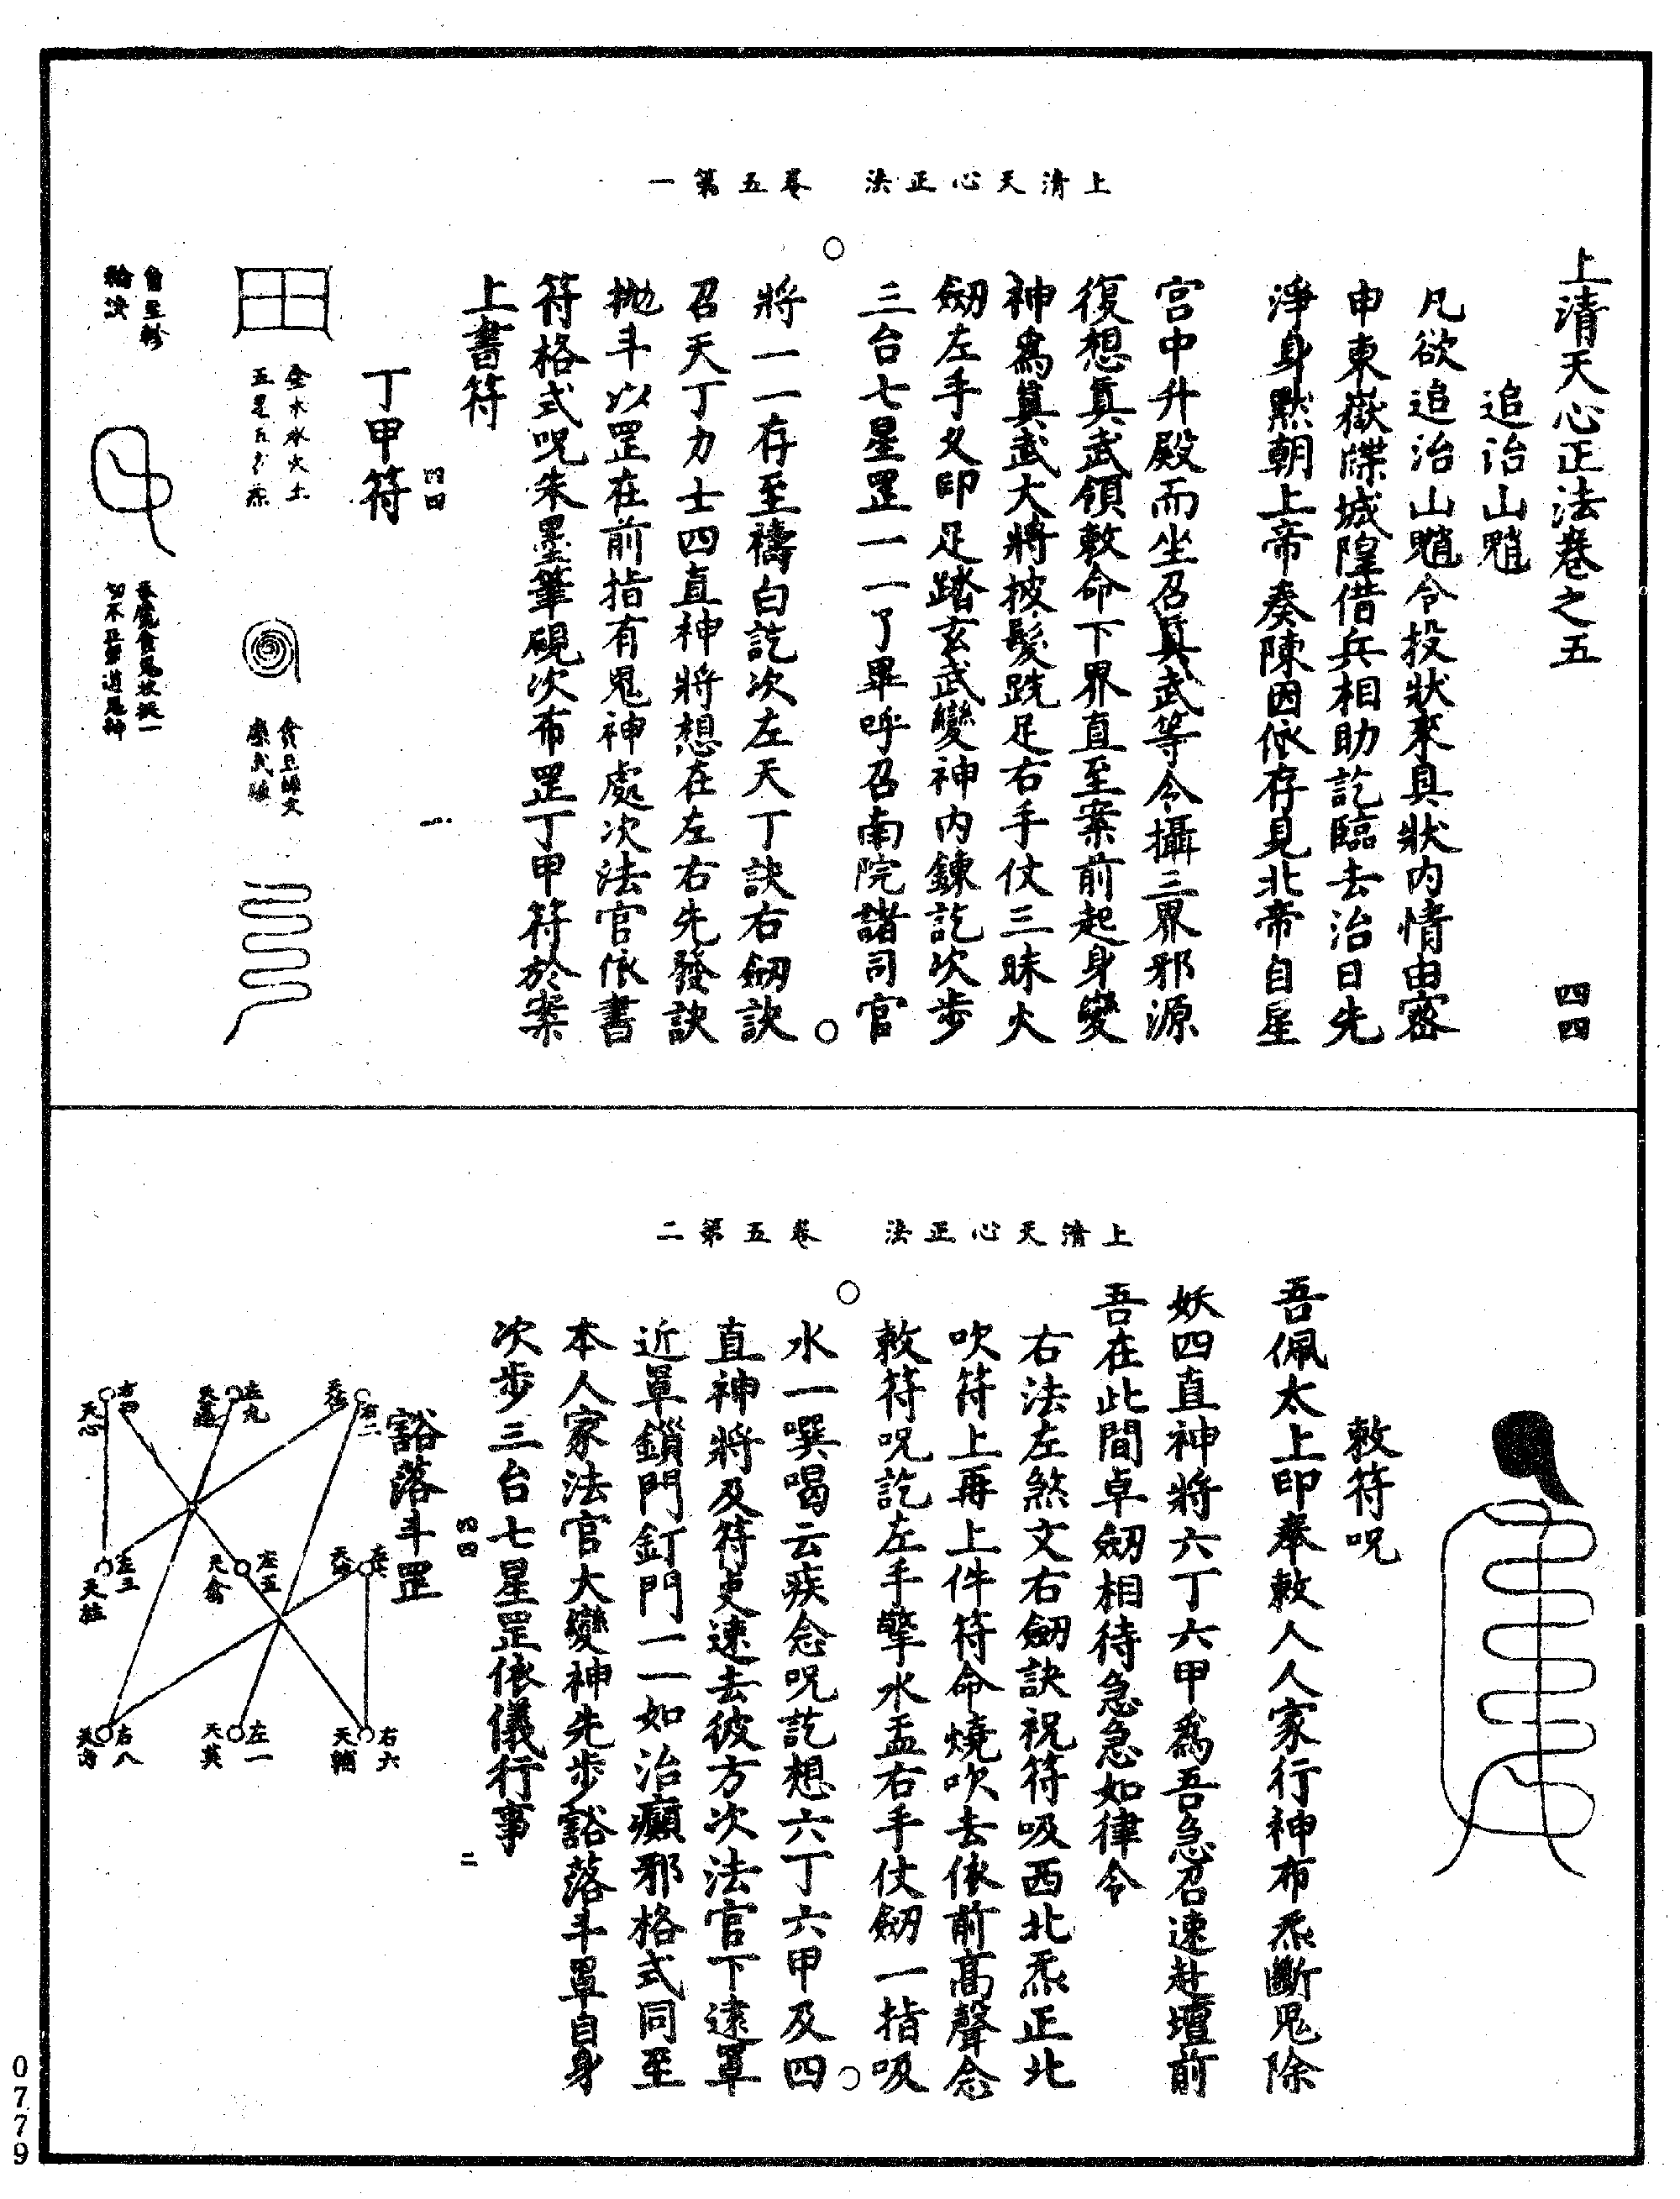 上清天心正法　卷五第一
上清天心正法卷之五　四四
追治山魈
凡欲追治山魈令投狀來具狀內情由密
申東嶽牒城隍借兵相助訖臨去治日先
淨身默朝上帝奏陳因依存見北帝自星
宮中升殿而坐召真武等令攝三界邪源
復想真武領敕命下界直至案前起身變
神爲真武大將披髮跣足右手仗三昧火
劒左手叉印足踏玄武變神內鍊訖次步
三台七星罡一一了畢呼召南院諸司官
將一一存至禱白訖次左天丁訣右劒訣
召天丁力士四直神將想在左右先發訣
拋斗以罡在前指有鬼神處次法官依書
符格式呪朱墨筆硯次布罡丁甲符於案
上書符
四四　一
丁甲符
金木水火土
五星五
上清天心正法　卷五第二
敕符呪
吾佩太上印奉敕人人家行神布炁斷鬼除
妖四直神將六丁六甲爲吾急召速赴壇前
吾在此間卓劒相待急急如律令
右法左煞文右劒訣祝符吸西北炁正北
吹符上再上件符命燒吹去依前高聲念
敕符呪訖左手擎水盂右手仗劒一指吸
水一噀喝云疾念呪訖想六丁六甲及四
直神將及符吏速去彼方次法官下遠罩
近罩鎖門釘門一一如治癲邪格式同至
本人家法官大變神先步豁落斗罩自身
次步三台七星罡依儀行事
四四　二
豁落斗罡
右二
左九
右四
天心
天禽
左五
左三
天柱
右六
天輔
左一
天英
右八
0779